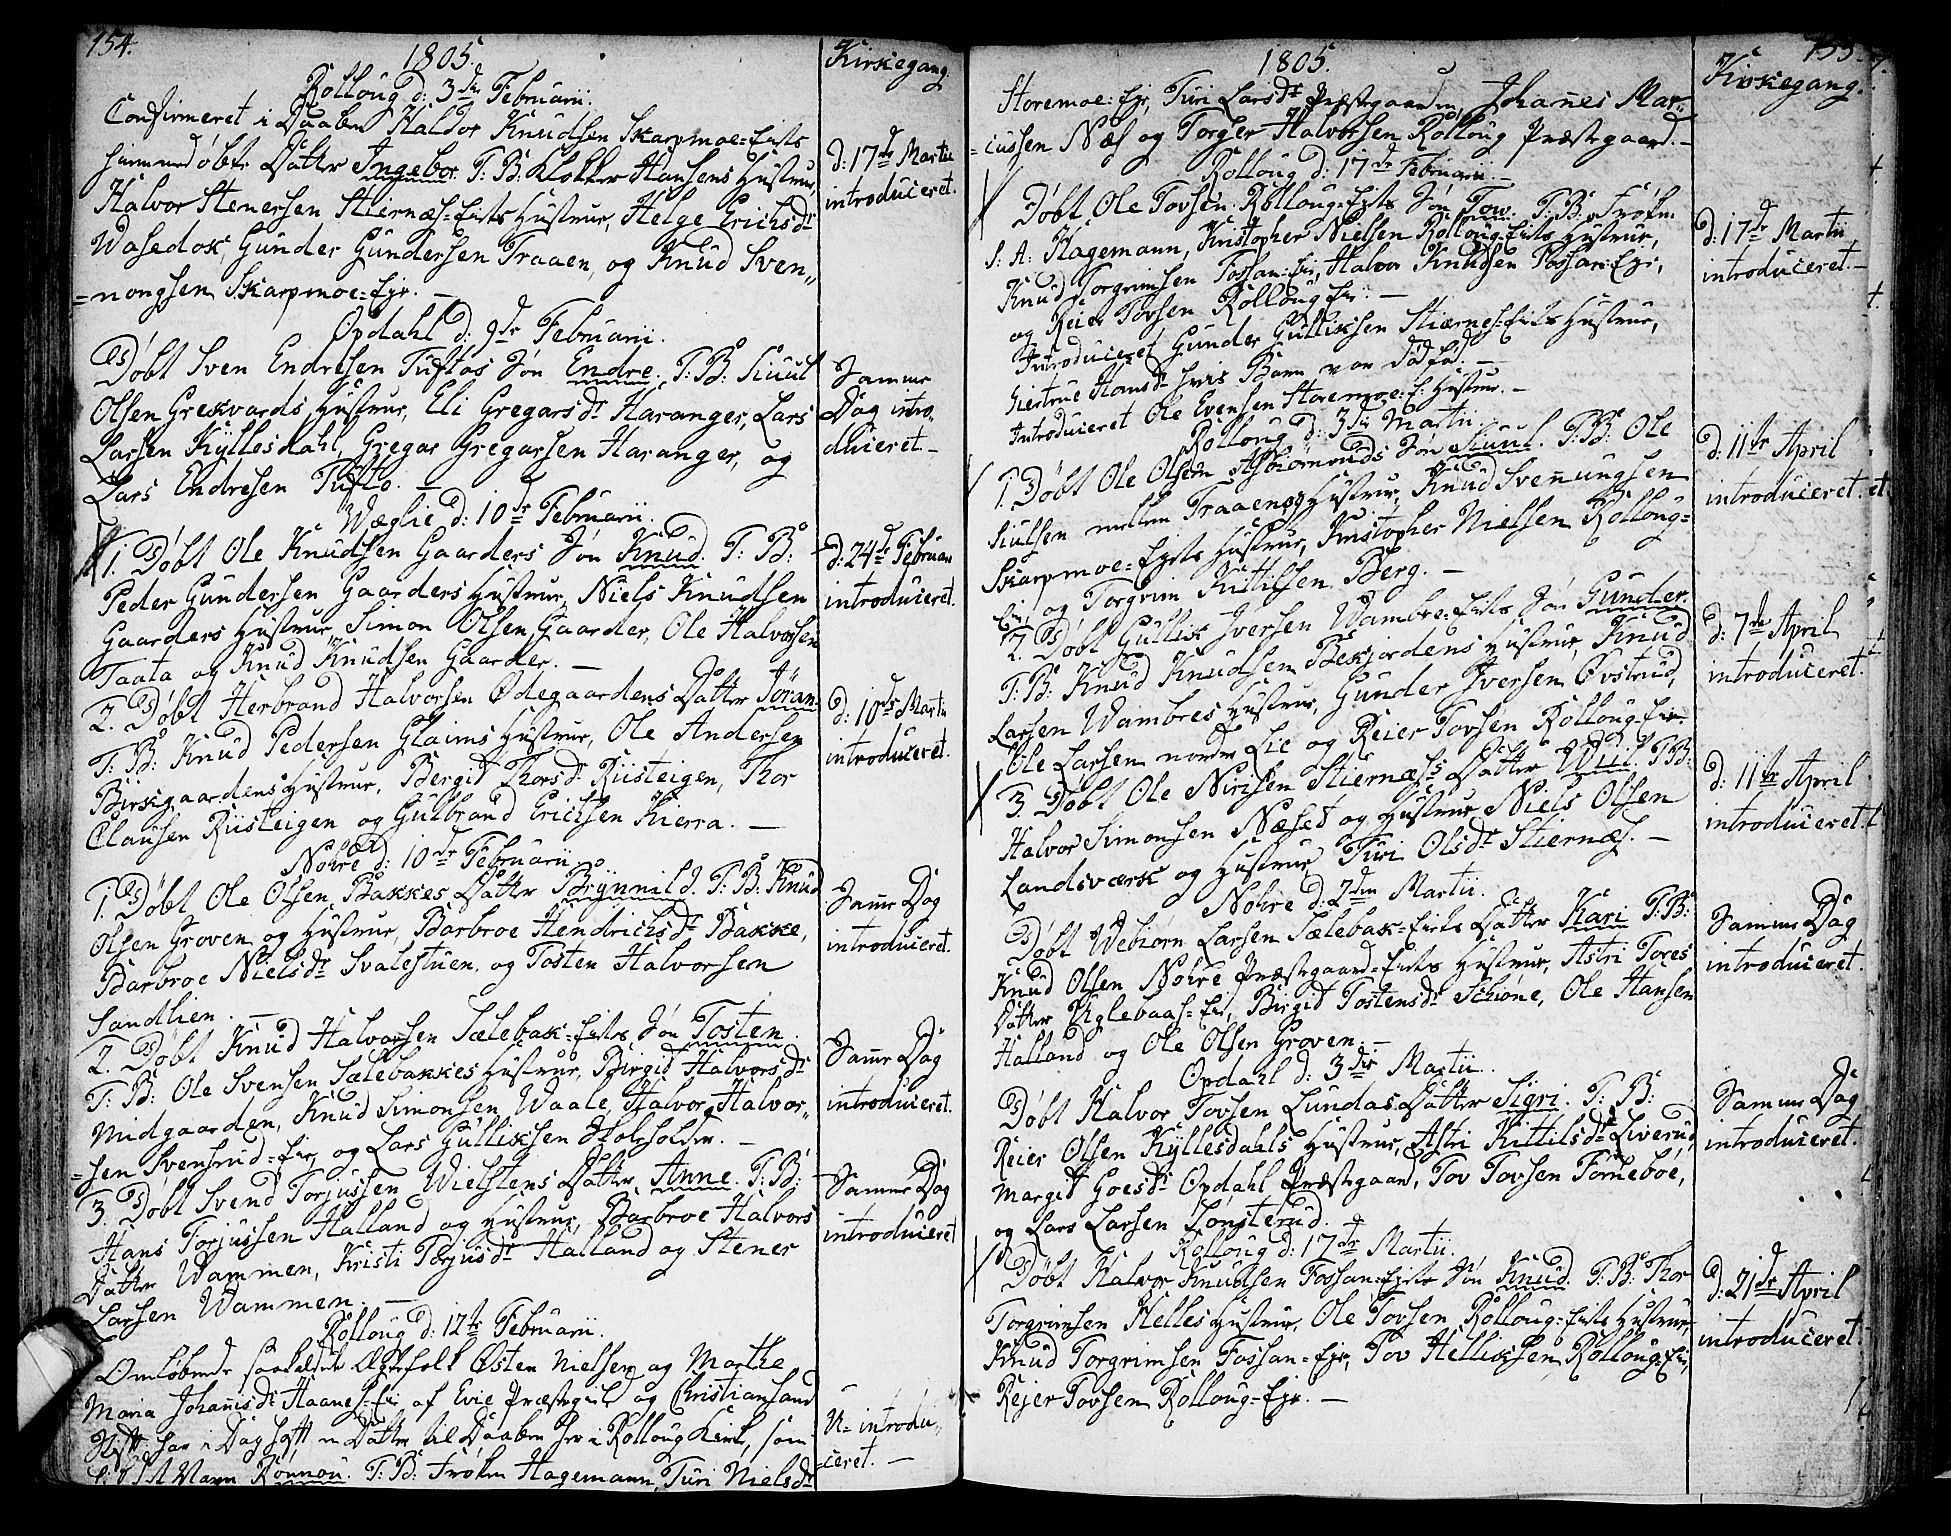 154.
1805.
Kirkegang.
Rolloug d: 3die Februarii.
Confirmeret i Daaben Haldor Knudsen Skarpmoe-Eiets
hiemmedøbte Datter Ingebor. T: B: Klokker Hansens Hustrue,
Halvor Stenersen Stiernæs-Eiets Hustrue, Helge Erichsdr
Wasedok, Gunder Gundersen Traaen, og Knud Sven„
=nongsen Skarpmoe-Eje. —
d: 17de Martii
introduceret.
Opdahl d: 9de Februarii.
Døbt Sven Endresen Tuftos Søn Endre. T: B: Siuul
Olsen Grekvards Hustrue, Eli Gregarsdr Haranger, Lars
Larsen Kyllesdahl, Gregar Gregarsen Haranger, og
Lars Endresen Tufto. —
Samme
Dag intro„
duceret. —
Wæglie d: 10de Februarii.
1. Døbt Ole Knudsen Gaarders Søn Knud. T: B:
Peder Gundersen Gaarders Hustrue, Niels Knudsen
Gaarders Hustrue, Simon Olsen Gaarder, Ole Halvorsen
Taata og Knud Knudsen Gaarder. —
d: 24de Februarii
introduceret.
2. Døbt Herbrand Halvorsen Ødegaardens Datter Jöran.
T: B: Knud Pedersen Glaims Hustrue, Ole Andersen
Birkgaardens Hustrue, Bergid Thorsdr Riisteigen, Thor
Clausen Riisteigen og Gulbrand Erichsen Kierra. —
d: 10de Martii
introduceret.
Nohre d: 10de Februarii
1. Døbt Ole Olsen Bakkes Datter Brynnild. T: B: Knud
Olsen Groven og Hustrue, Barbroe Hendrichsdr Bakke,
Barbroe Nielsdr Svalestuen, og Tosten Halvorsen
Sandlien. —
Samme Dag
introduceret.
2. Døbt Knud Halvorsen Sælebak-Eiets Søn Tosten
T: B: Ole Svensen Sælebakkes Hustrue, Birgid Halvorsdr
Midgaarden, Knud Simonsen Waale, Halvor Halvor„
=sen Svensrud-Eie, og Lars Gullixsen Skoleholder. —
Samme Dag
introduceret.
3. Døbt Svend Torjussen Wielstens Datter Anne. T: B:
Hans Torjussen Halland og Hustrue, Barbroe Halvors
Datter Wammen, Kristi Torjusdr Halland og Stener
Larsen Wammen. —
Samme Dag
introduceret
Rolloug d: 12te Februarii.
Omløbende saakaldede Ægtefolk Østen Nielsen og Marthe
Maria Johanisdr Haanes-Eie af Evie Præstegield og Christiansand
Stift har i Dag haft en Datter til Daaben her i Rolloug Kirke, som
Navn Rönnou. T: B: Frøken Hagemann, Turi Nielsdr
U= introdu„
=ceret. —
155.
1805.
Kirkegang.
Storemoe-Eje, Turi Larsdr Præstegaarden, Johannes Mar„
=cussen Næs og Torger Halvorsen Rolloug Præstegaard. —
Rolloug d: 17de Februarii —
Døbt Ole Tovsen Rolloug-Eiets Søn Tow. T: B: Frøken
S. A: Hagemann, Kristopher Nielsen Rolloug-Eiets Hustrue,
Knud Torgrimsen Fossan-Eie, Halvor Knudsen Fossan-Eje,
og Reier Tovsen Rolloug Eie. —
d: 17de Martii
introduceret. —
Introduceret Gunder Gullixsen Stiernes-Eiets Hustrue,
Giertrue Hansdr hvis Barn var dødfød. —
Introduceret Ole Evensen Storemoe-E: Hustrue. —
Rolloug d: 3die Martii.
1. Døbt Ole Olsen Asbiørnruds Søn Siuul. T: B: Ole
Siulsen mellem Traaen og Hustrue, Knud Svenungsen
Skarpmoe-Ejets Hustrue, Kristopher Nielsen Rolloug=
Eie og Torgrim Kittilsen Berg. —
d: 11te April
introduceret.
2. Døbt Gullik Iversen Wambre-Eiets Søn Gunder.
T: B: Knud Knudsen Beskjordens Hustrue, Knud
Larsen Wambres Hustrue, Gunder Iversen Øvstrud,
Ole Larsen nordre Lie og Reier Tovsen Rolloug-Eie.
d: 7de April
introduceret.
3. Døbt Ole Nirisen Stiernæs's Datter Wiil. T: B:
Halvor Simonsen Næset og Hustrue, Niels Olsen
Landsværk og Hustrue, Turi Olsdr Stiernæs. —
d: 11te April
introduceret.
Nohre d: 2den Martii.
Døbt Webiørn Larsen Sælebak-Eiets Datter Kari T: B:
Knud Olsen Nohre Præstegaard-Eiets Hustrue, Astri Tores
Datter Uglebaas-Eie, Birgid Tostensdr Schiöne, Ole Hansen
Halland og Ole Olsen Groven. —
Samme Dag
introduceret.
Opdahl d: 3die Martii.
Døbt Halvor Tovsen Lundas Datter Sigri. T: B:
Reier Olsen Kyllesdahls Hustrue, Astri Kittilsdr Liverud,
Margit Goesdr Opdahl Præstegaard, Tov Tovsen Førneboe,
og Lars Larsen Lonsterud.
Samme Dag
introduceret.
Rolloug d: 17de Martii.
Døbt Halvor Knudsen Fossan-Ejets Søn Knud. T: B: Thor
Torgrimsen Helles Hustrue, Ole Tovsen Rolloug-Eiets Hustrue,
Knud Torgrimsen Fossan-Eje, Tov Hellixsen Rolloug-Eie,
Rejer Tovsen Rolloug-Eje. —
d: 21de April
introduceret.